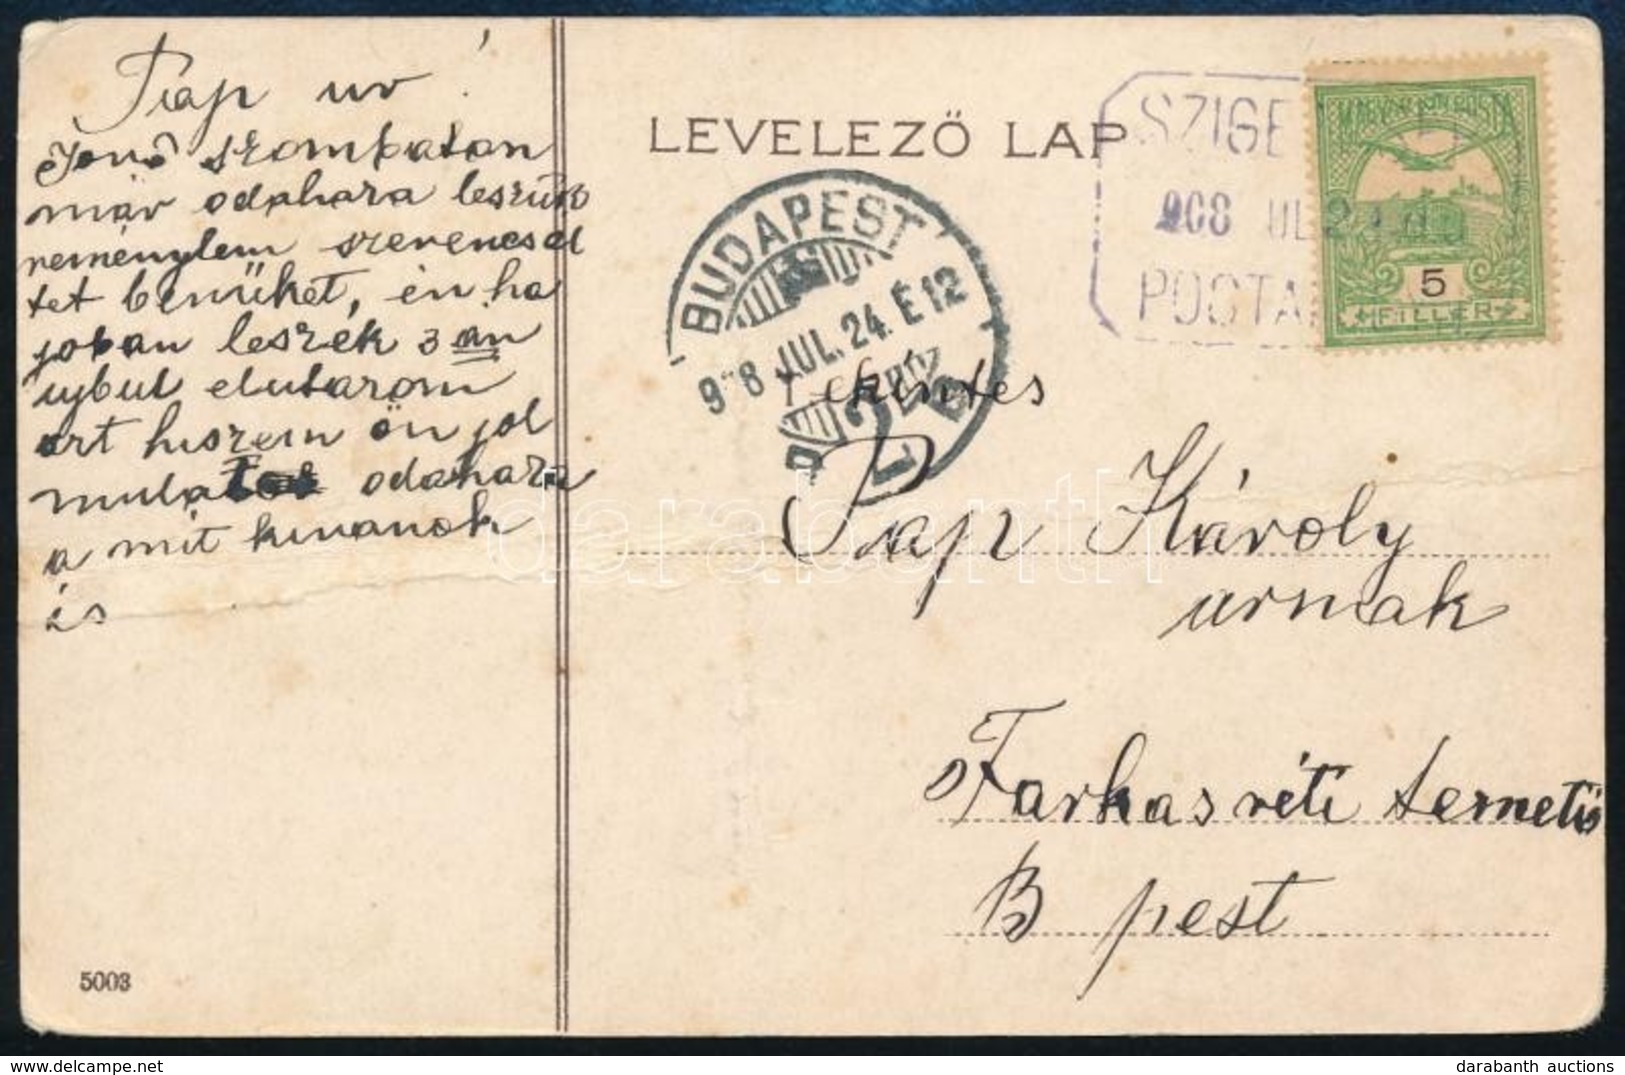 Pap ur!
Jövő szombaton
már odahara leszünk
reménylem szerencsél
tet benüket, én ha
joban leszek 3 án
ujbul elutarom
ört hiszem ön jol
mulatot odahara
a mit kivanok
és
LEVELEZŐ LAP
SZIGE
908 JUL 24
POSTA
MAGYAR KIR. POSTA
5
FILLÉR
BUDAPEST
908 JUL. 24. É 12
2
Tekintes
Pap Károly
urnak
Farkasréti temető
B pest
5003
darabanth
darabanth auctions